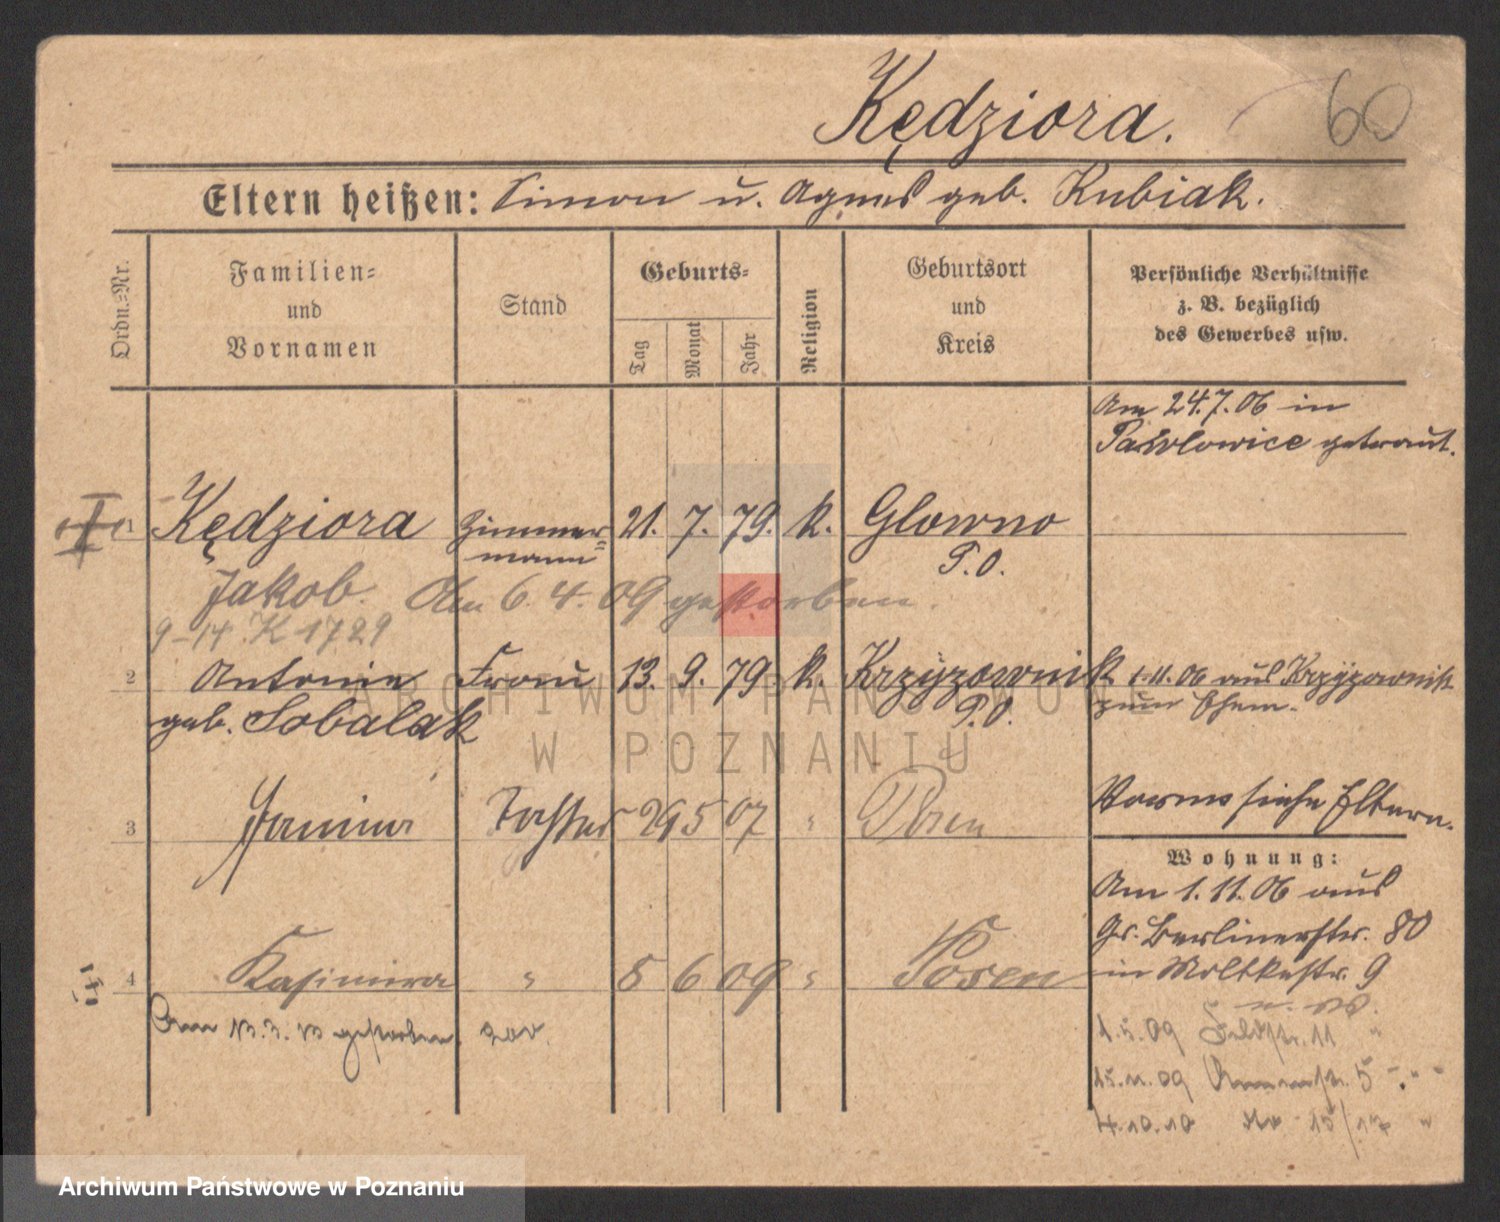 Kędziora. 60
Eltern heißen: Simon u. Agnes geb. Kubiak.
Ordn.=Nr.
Familien=
und
Vornamen
Stand
Geburts=
Tag
Monat
Jahr
Religion
Geburtsort
und
Kreis
Persönliche Verhältnisse
z. B. bezüglich
des Gewerbes usw.
Am 24.7.06 in
Pawlowice getraut.
1 Kędziora Zimmer= 21. 7. 79. k. Glowno
mann P.O.
Jakob. Am 6. 4. 09 gestorben.
9-14. K 1729
2 Antonie Frau 13. 9. 79. k. Krzyżownik 1.11.06 aus Krzyżownik
geb. Sobalak P.O. zum Ehem.
3 Janina Tochter 29 5 07 " Posen
Vorns siehe Eltern.
Wohnung:
Am 1.11.06 aus
Gr. Berlinerstr. 80
in Moltkestr. 9
4 Kasimira " 8 6 09 " Posen
Am 13.3.13 gestorben.
1.5.09 Feldstr. 11 "
15.11.09 5
4.10.10 15/17 "
ARCHIWUM PAŃSTWOWE
W POZNANIU
Archiwum Państwowe w Poznaniu